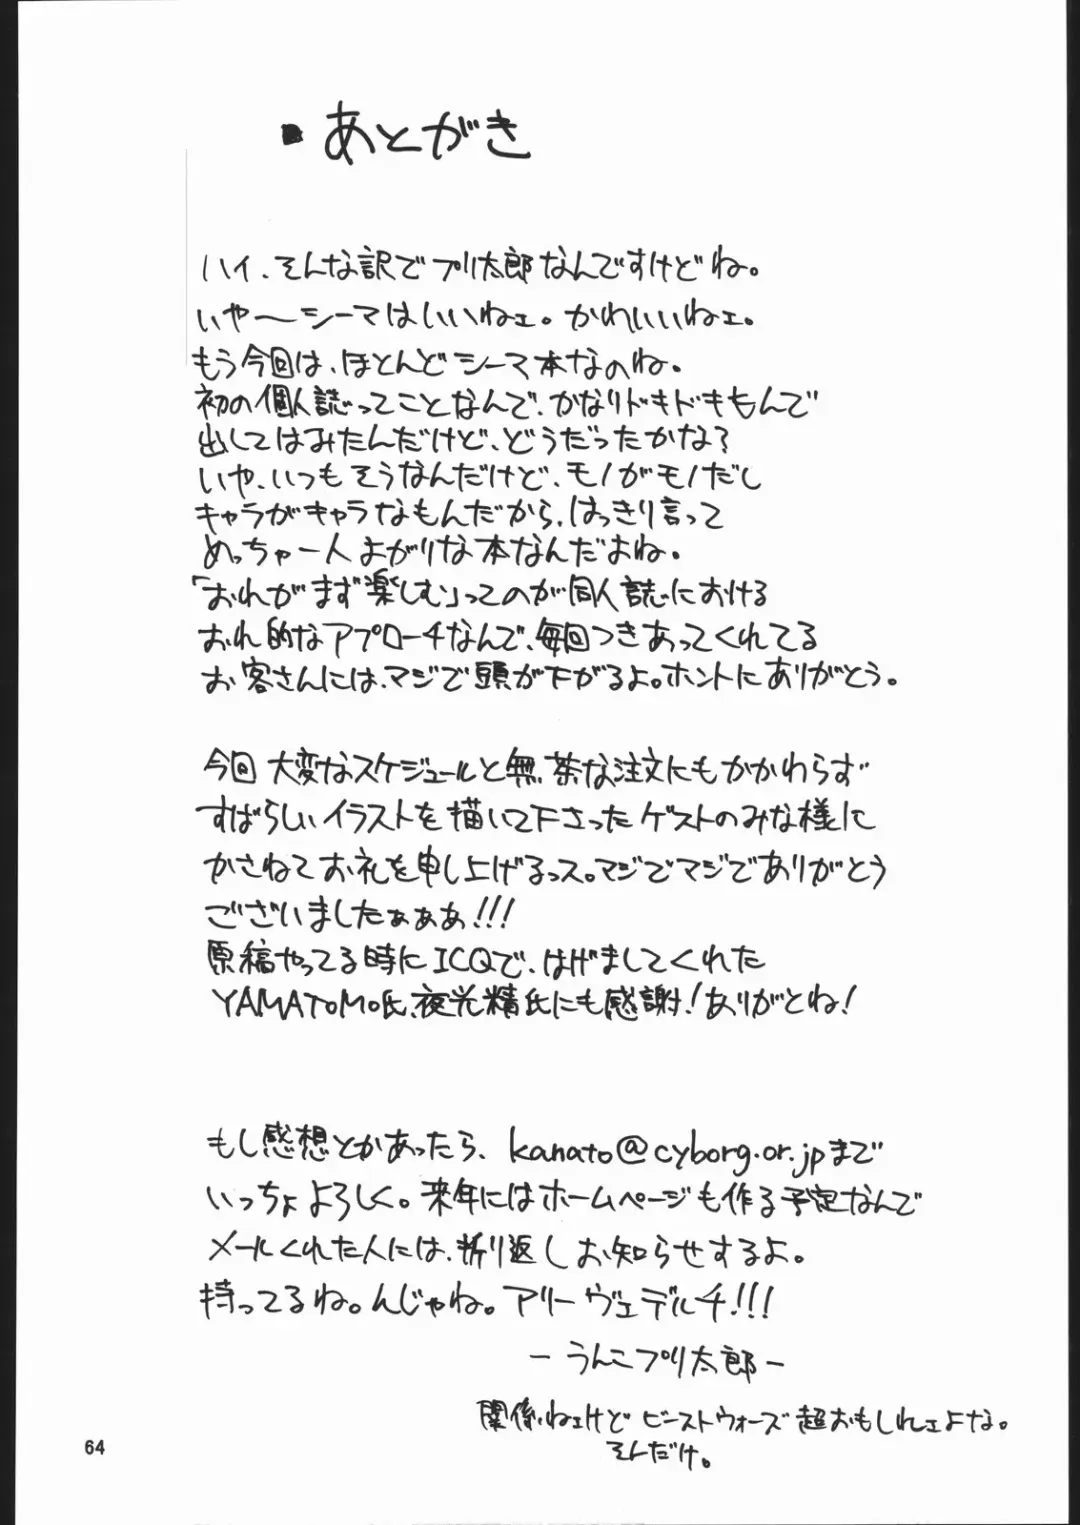 ・あとがき
ハイ、そんな訳でプリ太郎なんですけどね。
いや〜シーマはいいねェ。かわいいねェ。
もう今回は、ほとんどシーマ本なのね。
初の個人誌ってことなんで、かなりドキドキもんで
出してはみたんだけど、どうだったかな?
いや、いつもそうなんだけど、モノがモノだし
キャラがキャラなもんだから、はっきり言って
めっちゃ一人よがりな本なんだよね。
「おれがまず楽しむ」ってのが同人誌における
おれ的なアプローチなんで、毎回つきあってくれてる
お客さんには、マジで頭が下がるよ。ホントにありがとう。
今回大変なスケジュールと無茶な注文にもかかわらず
すばらしいイラストを描いて下さったゲストのみな様に
かさねてお礼を申し上げるっス。マジでマジでありがとう
ございましたぁぁぁ!!!
原稿やってる時にICQで、はげましてくれた
YAMATOMO氏、夜光精氏にも感謝!ありがとね!
もし感想とかあったら、kanato@cyborg.or.jpまで
いっちょよろしく。来年にはホームページも作る予定なんで
メールくれた人には、折り返しお知らせするよ。
持ってるね。んじゃね。アリーヴェデルチ!!!
ーうんこプリ太郎ー
関係ねェけどビーストウォーズ超おもしれェよな。
そんだけ。
64